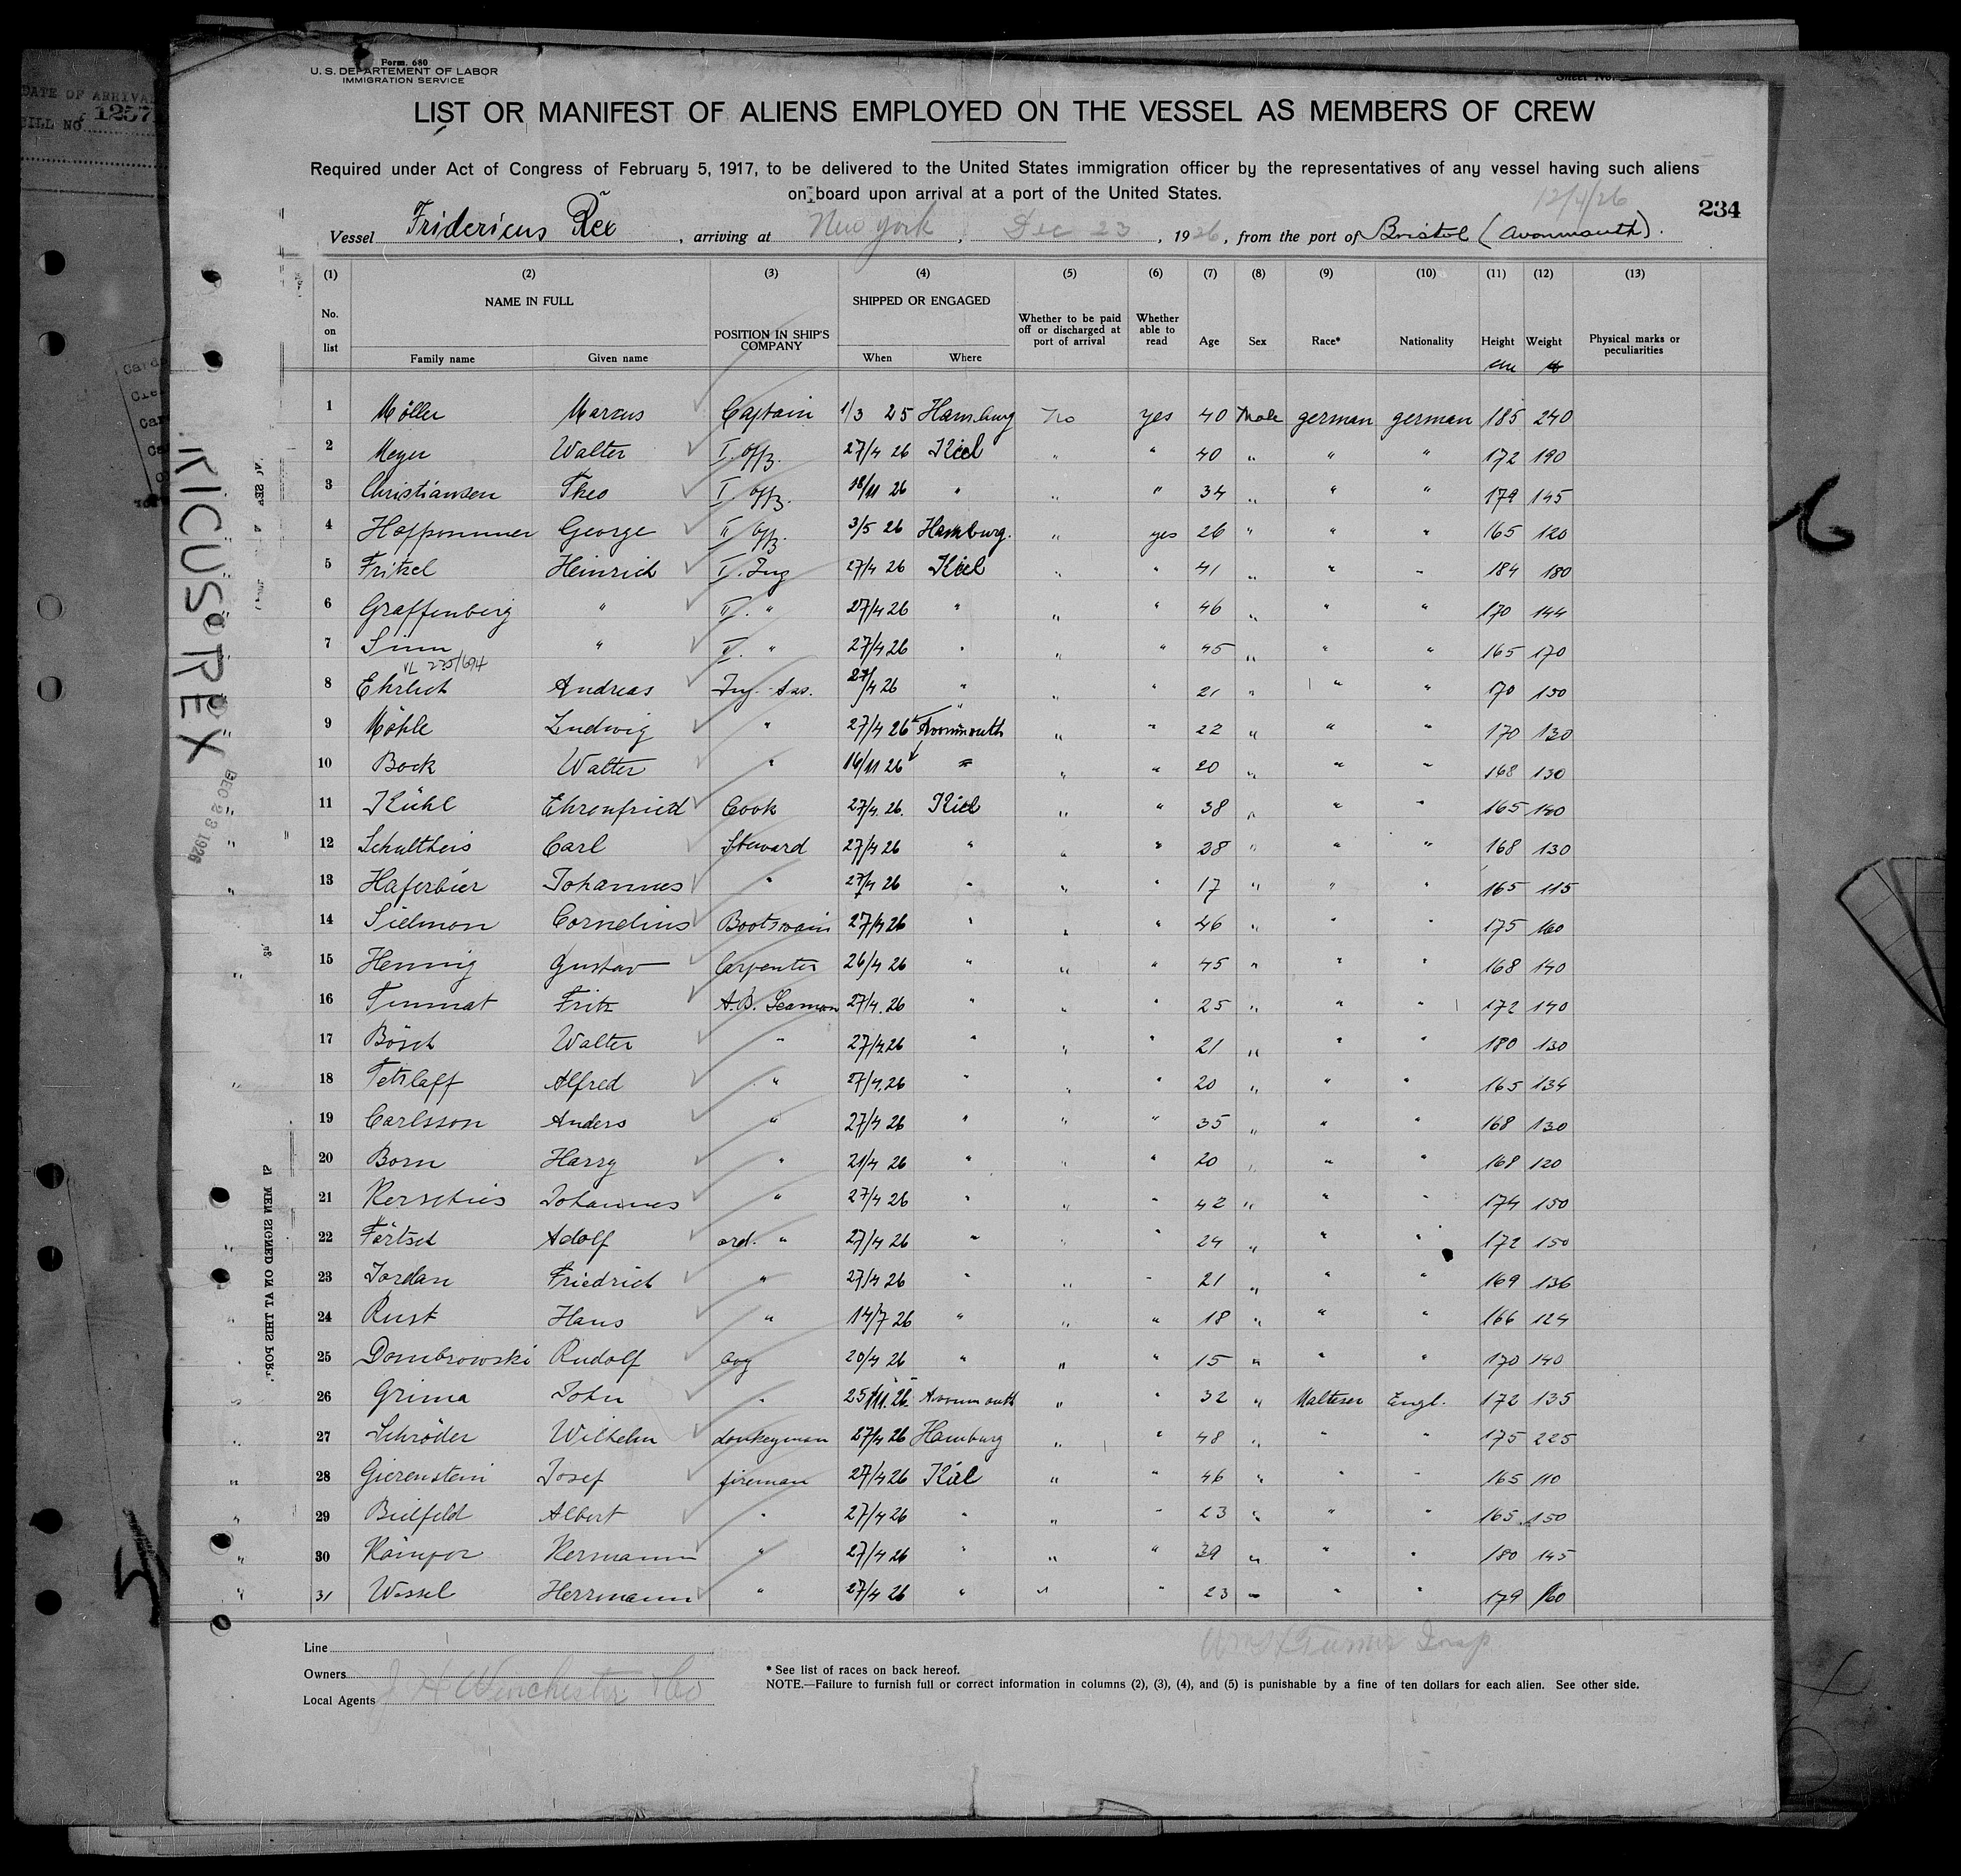 DATE OF ARRIVAL
BILL NO 1257
Form. 680
U. S. DEPARTEMENT OF LABOR
IMMIGRATION SERVICE
Sheet No.
LIST OR MANIFEST OF ALIENS EMPLOYED ON THE VESSEL AS MEMBERS OF CREW
Required under Act of Congress of February 5, 1917, to be delivered to the United States immigration officer by the representatives of any vessel having such aliens
on board upon arrival at a port of the United States.
12/4/26
234
Vessel Fridericus Rex, arriving at New York, Dec 23, 1926, from the port of Bristol (Avonmouth).
(1) (2) (3) (4) (5) (6) (7) (8) (9) (10) (11) (12) (13)
No. on list NAME IN FULL Family name Given name POSITION IN SHIP'S COMPANY SHIPPED OR ENGAGED When Where Whether to be paid off or discharged at port of arrival Whether able to read Age Sex Race* Nationality Height Weight Physical marks or peculiarities
cm
1 Möller Marcus Captain 1/3 25 Hamburg No yes 40 Male german german 185 240
2 Meyer Walter I. Offz. 27/4 26 Kiel " " 40 " " " 172 190
3 Christiansen Theo I Offz. 18/11 26 " " " 34 " " " 179 145
4 Hoffpommer George II Offz. 3/5 26 Hamburg. " yes 26 " " " 165 120
5 Fritzel Heinrich I. Ing 27/4 26 Kiel " " 41 " " " 184 180
6 Graffenberg " II. " 27/4 26 " " " 46 " " " 170 144
7 Sinn " " 27/4 26 " " " 45 " " " 165 170
VL 225/694
8 Ehrlich Andreas Ing. Ass. 27/4 26 " " " 21 " " " 170 150
9 Möhle Ludwig " 27/4 26 Avonmouth " " 22 " " " 170 130
10 Bock Walter " 16/11 26 " " " 20 " " " 168 130
11 Kühl Ehrenfried Cook 27/4. 26. Kiel " " 38 " " " 165 140
12 Schultheis Carl Steward 27/4 26 " " " 28 " " " 168 130
13 Haferbier Johannes " 27/4 26 " " " 17 " " " 165 115
14 Sielmon Cornelius Bootswain 27/4 26 " " " 46 " " " 175 160
15 Hennig Gustav Carpenter 26/4 26 " " " 45 " " " 168 140
16 Timmat Fritz A.B. Seaman 27/4. 26 " " " 25 " " " 172 140
17 Bösch Walter " 27/4.26 " " " 21 " " " 180 130
18 Tetzlaff Alfred " 27/4.26 " " " 20 " " " 165 134
19 Carlsson Anders " 27/4 26 " " " 35 " " " 168 130
20 Born Harry " 21/4 26 " " " 20 " " " 168 120
21 Kerschies Johannes " 27/4 26 " " " 42 " " " 174 150
22 Förtsch Adolf ord. " 27/4 26 " " " 24 " " " 172 150
23 Jordan Friedrich " 27/4 26 " " " 21 " " " 169 136
24 Rust Hans " 14/7 26 " " " 18 " " " 166 124
25 Dombrowski Rudolf boy 20/4 26 " " " 15 " " " 170 140
26 Grima John " 25/11. 26. Avonmouth " " 32 " Malteser Engl. 172 135
27 Schröder Wilhelm donkeyman 27/4 26 Hamburg " " 48 " " " 175 225
28 Gierenstein Josef fireman 27/4 26 Kiel " " 46 " " " 165 110
29 Bielfeld Albert " 27/4 26 " " " 23 " " " 165 150
30 Kämpor Hermann " 27/4 26 " " " 39 " " " 180 145
31 Wessel Herrmann " 27/4 26 " " " 23 " " " 179 160
RICUS REX
DEC 23 1926
MEN SIGNED ON AT THIS PORT.
Line
Owners
Local Agents J H Winchester & Co
Wm H Turner Insp
* See list of races on back hereof.
NOTE.—Failure to furnish full or correct information in columns (2), (3), (4), and (5) is punishable by a fine of ten dollars for each alien. See other side.